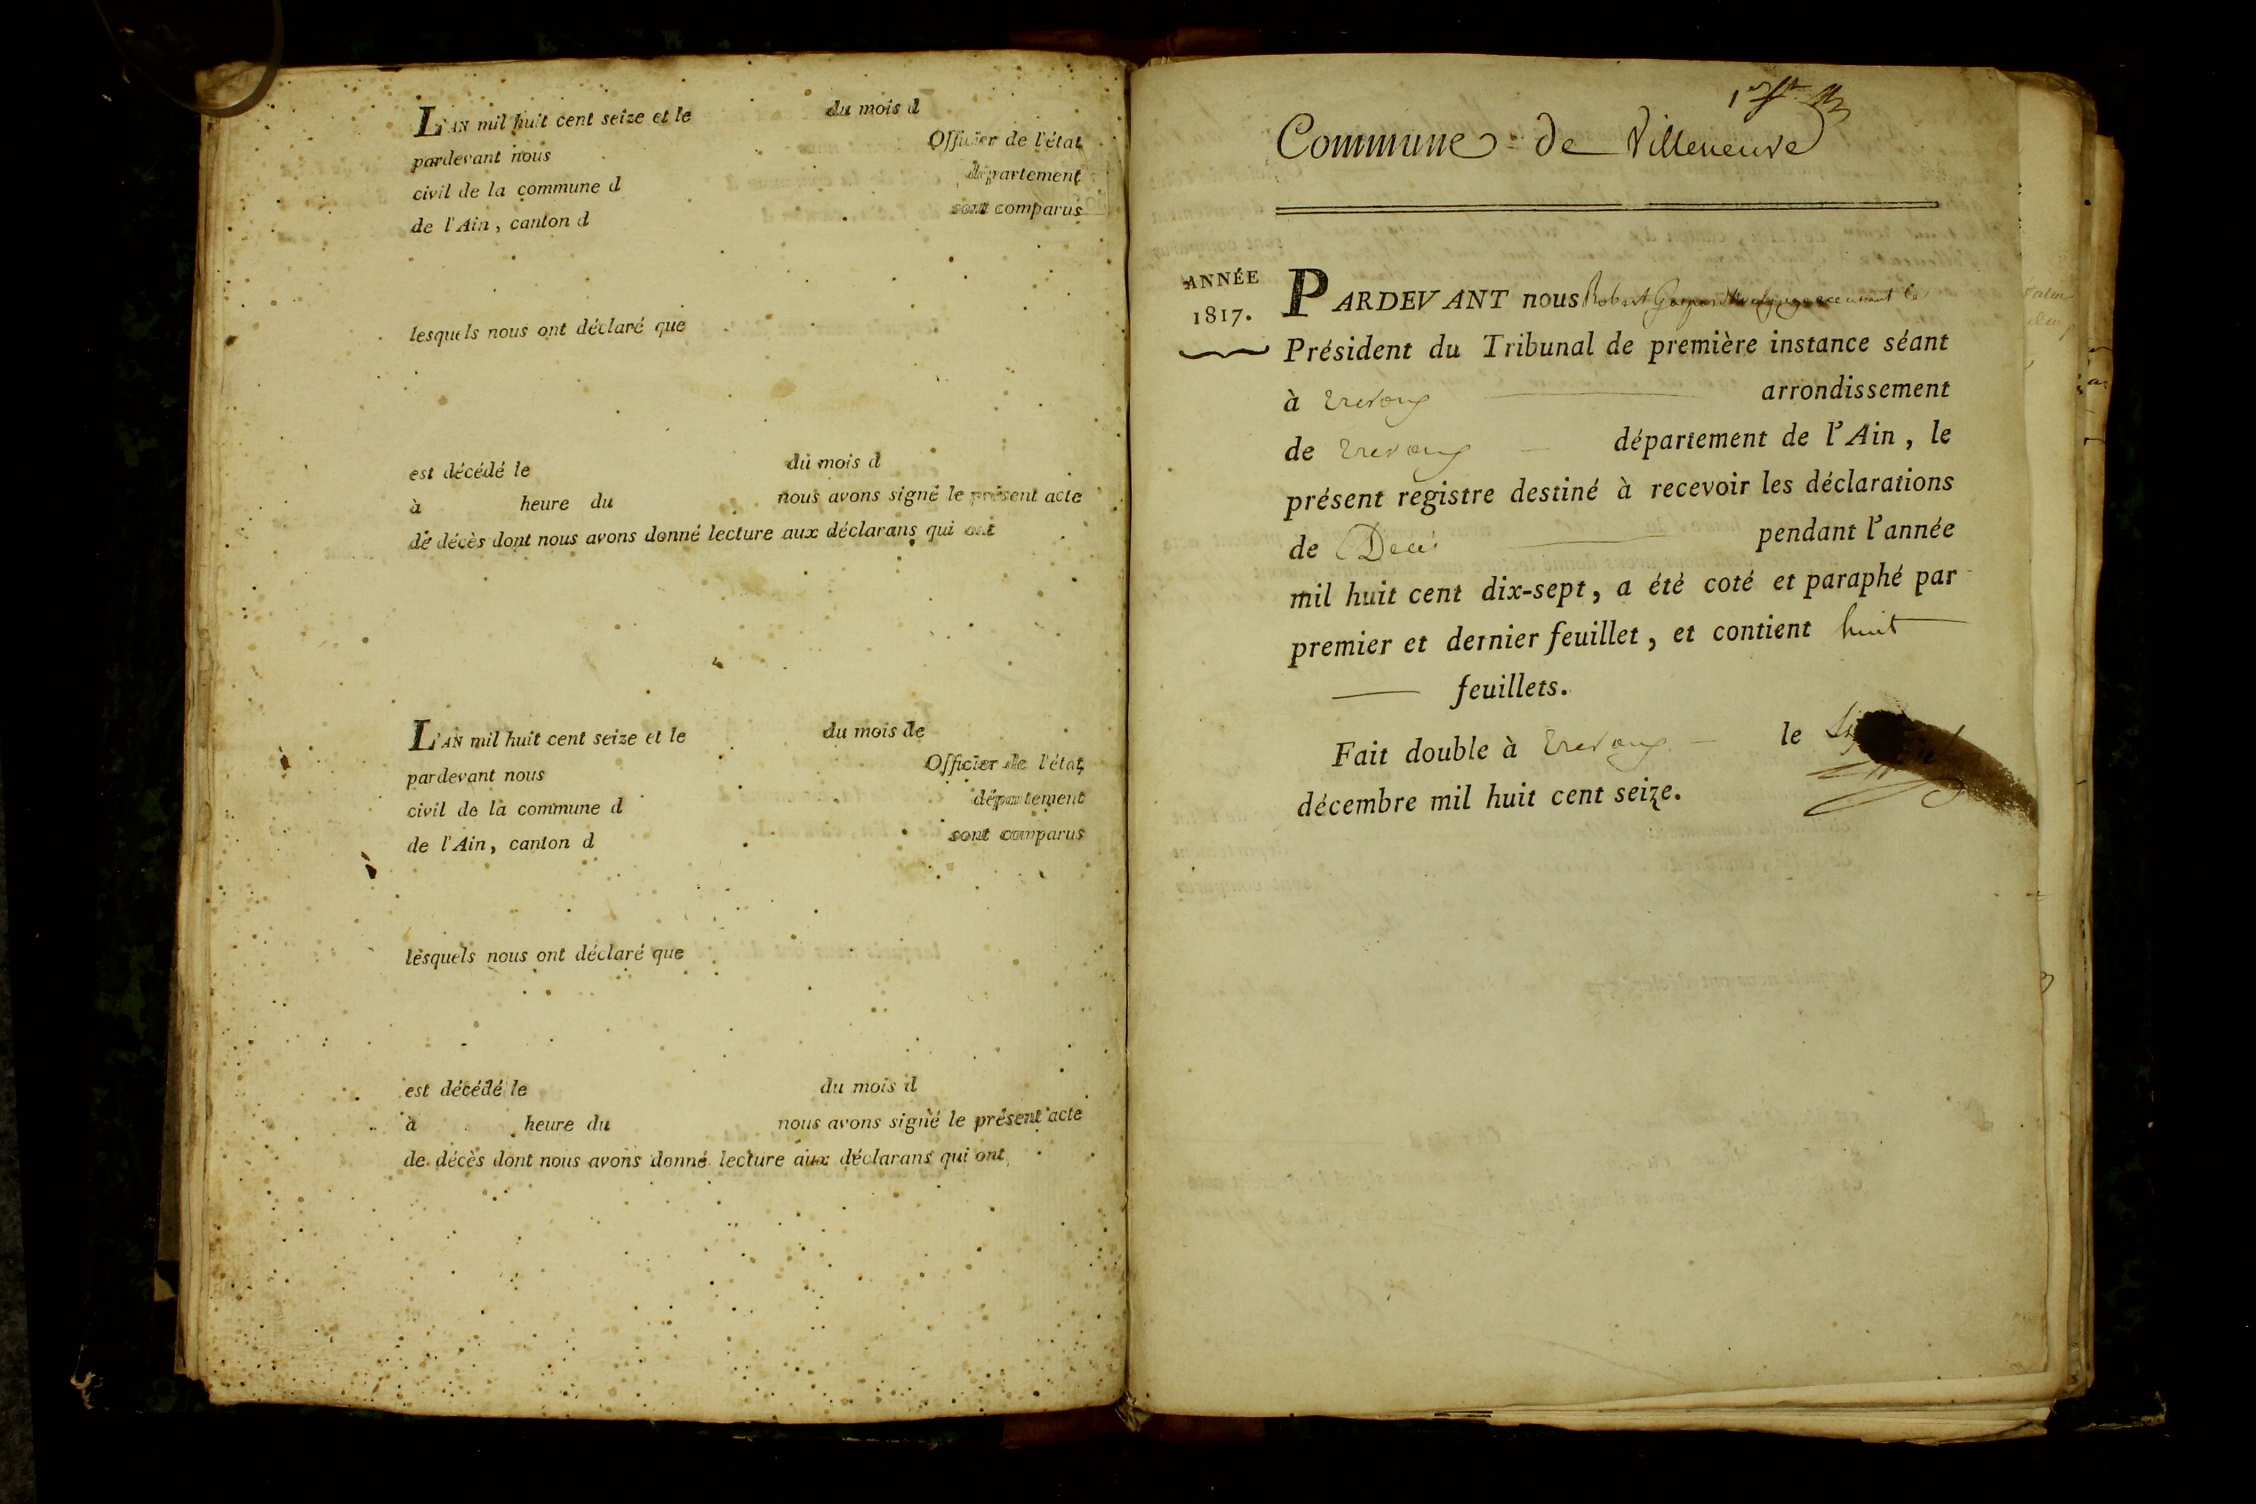 L'AN mil huit cent seize et le du mois d
pardevant nous Officier de l'état
civil de la commune d département
de l'Ain, canton d sont comparus
lesquels nous ont déclaré que
est décédé le du mois d
à heure du nous avons signé le présent acte
de décès dont nous avons donné lecture aux déclarans qui ont
L'AN mil huit cent seize et le du mois de
pardevant nous Officier de l'état
civil de la commune d département
de l'Ain, canton d sont comparus
lesquels nous ont déclaré que
est décédé le du mois d
à heure du nous avons signé le présent acte
de décès dont nous avons donné lecture aux déclarans qui ont
Commune de Villeneuve
ANNÉE
1817.
PARDEVANT nous Robert Gaspard
Président du Tribunal de première instance séant
à Trevoux arrondissement
de Trevoux département de l'Ain, le
présent registre destiné à recevoir les déclarations
de Decès pendant l'année
mil huit cent dix-sept, a été coté et paraphé par
premier et dernier feuillet, et contient huit
feuillets.
Fait double à Trevoux le
décembre mil huit cent seize.